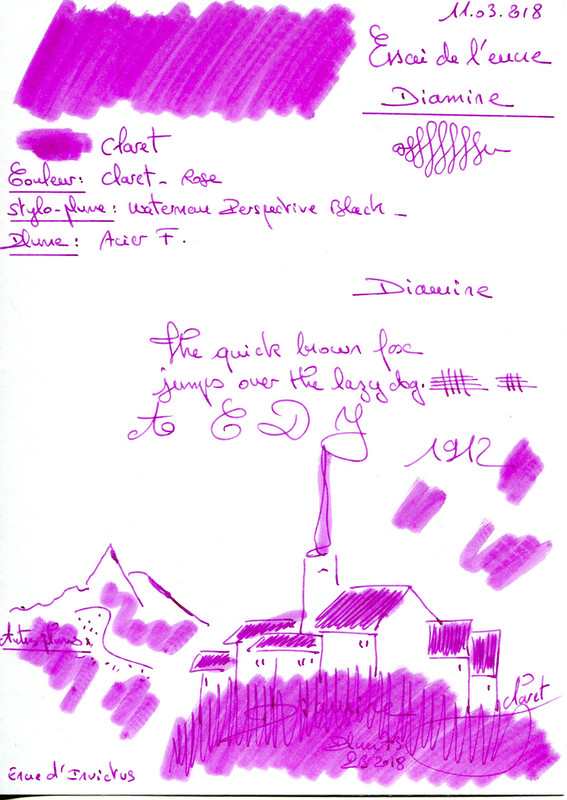 11.03.2018
Essai de l'encre
Diamine
Claret
Couleur: Claret - Rose
Stylo-plume: Waterman Perspective Black -
Plume: Acier F.
Diamine
the quick brown fox
jumps over the lazy dog.
A E D J
1912
Claret
Diamine
2018
Encre d'Invictus